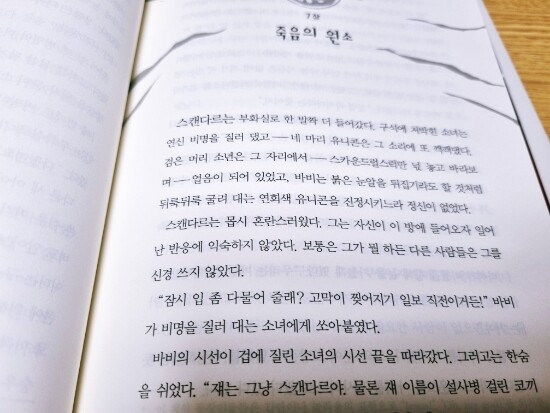 7장
죽음의 원소
스캔다르는 부화실로 한 발짝 더 들어갔다. 구석에 처박힌 소녀는
연신 비명을 질러 댔고 — 네 마리 유니콘은 그 소리에 또 꽥꽥댔다.
검은 머리 소년은 그 자리에서 — 스카운드럴스럭만 넋 놓고 바라보
며 — 얼음이 되어 있었고, 바비는 붉은 눈알을 뒤집기라도 할 것처럼
뒤룩뒤룩 굴려 대는 연회색 유니콘을 진정시키느라 정신이 없었다.
스캔다르는 몹시 혼란스러웠다. 그는 자신이 이 방에 들어오자 일어
난 반응에 익숙하지 않았다. 보통은 그가 뭘 하든 다른 사람들은 그를
신경 쓰지 않았다.
“잠시 입 좀 다물어 줄래? 고막이 찢어지기 일보 직전이거든!” 바비
가 비명을 질러 대는 소녀에게 쏘아붙였다.
바비의 시선이 겁에 질린 소녀의 시선 끝을 따라갔다. 그러고는 한숨
을 쉬었다. “쟤는 그냥 스캔다르야. 물론 쟤 이름이 설사병 걸린 코끼